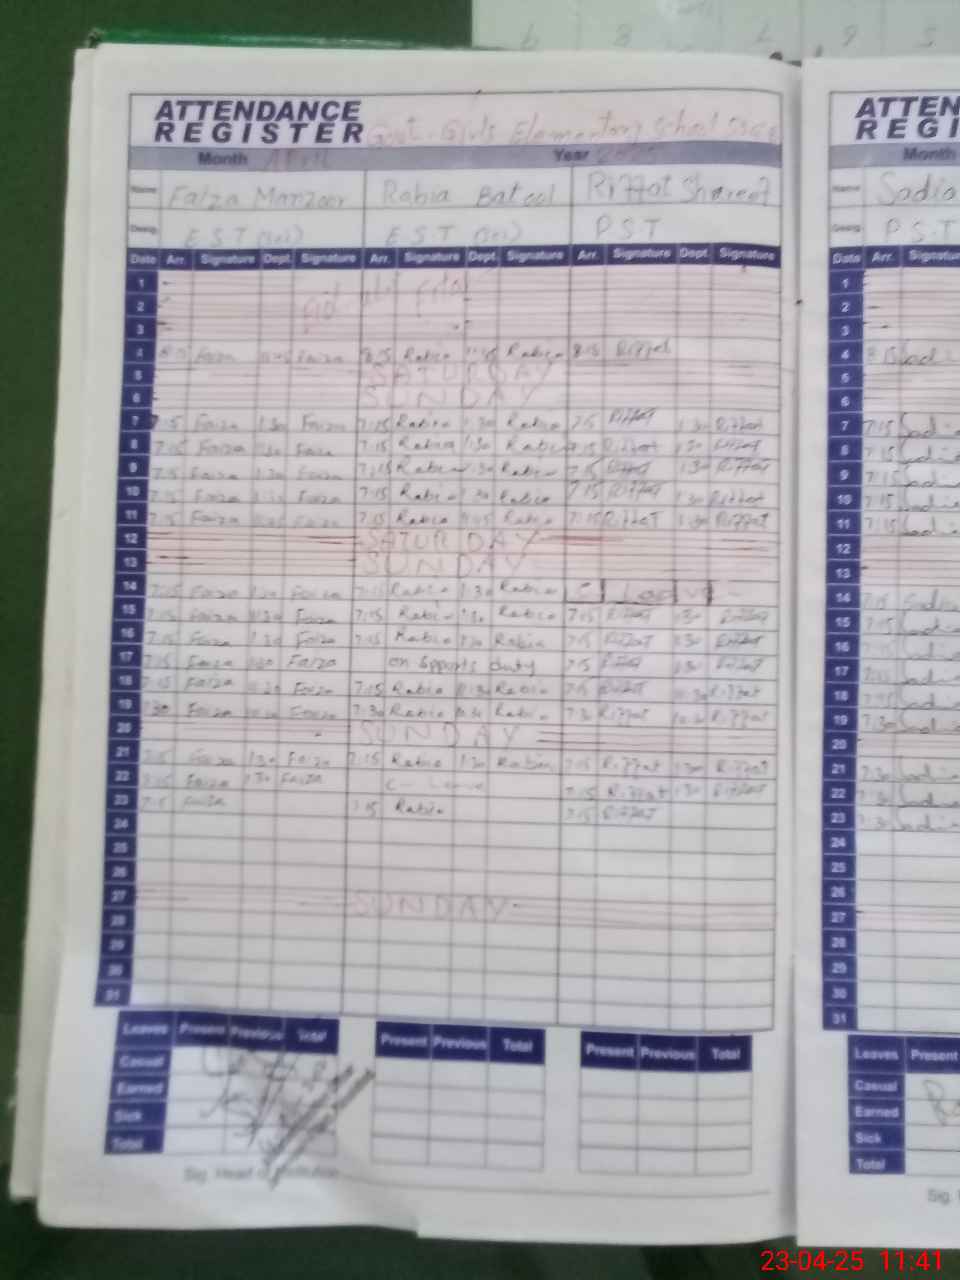 ATTENDANCE
REGISTER Govt. Girls Elementary School
Month APRIL Year
Name Faiza Manzoor Rabia Batool Riffat Shareef
Desig. E.S.T E.S.T P.S.T
Date Arr. Signature Dept. Signature Arr. Signature Dept. Signature Arr. Signature Dept. Signature
1
2
3
4 Faiza Faiza 8:15 Rabia Rabia 8:15 Riffat
5 SATURDAY
6 SUNDAY
7 7:15 Faiza 1:30 Faiza 7:15 Rabia 1:30 Rabia 7:15 Riffat 1:30 Riffat
8 7:15 Faiza 1:30 Faiza 7:15 Rabia 1:30 Rabia 7:15 Riffat 1:30 Riffat
9 7:15 Faiza 1:30 Faiza 7:15 Rabia 1:30 Rabia 7:15 Riffat 1:30 Riffat
10 7:15 Faiza 1:30 Faiza 7:15 Rabia 1:30 Rabia 7:15 Riffat 1:30 Riffat
11 7:15 Faiza Faiza 7:15 Rabia Rabia 7:15 Riffat Riffat
12 SATURDAY
13 SUNDAY
14 7:15 Faiza 1:30 Faiza 7:15 Rabia 1:30 Rabia C Leave
15 7:15 Faiza 1:30 Faiza 7:15 Rabia 1:30 Rabia 7:15 Riffat 1:30 Riffat
16 7:15 Faiza 1:30 Faiza 7:15 Rabia 1:30 Rabia 7:15 Riffat 1:30 Riffat
17 7:15 Faiza 1:30 Faiza on Spports duty 7:15 Riffat 1:30 Riffat
18 7:15 Faiza Faiza 7:15 Rabia Rabia 7:15 Riffat Riffat
19 7:30 Faiza Faiza 7:30 Rabia Rabia 7:30 Riffat Riffat
20 SUNDAY
21 7:15 Faiza 1:30 Faiza 7:15 Rabia 1:30 Rabia 7:15 Riffat 1:30 Riffat
22 7:15 Faiza 1:30 Faiza C- Leave 7:15 Riffat 1:30 Riffat
23 7:15 Faiza 7:15 Rabia 7:15 Riffat
24
25
26
27 SUNDAY
28
29
30
31
Leaves Present Previous Total Present Previous Total Present Previous Total
Casual
Earned
Sick
Total
Sig. Head of Institution
ATTEN
REGI
Month
Name Sadia
Desig. P.S.T
Date Arr. Signatu
1
2
3
4 8:15
5
6
7 7:15
8 7:15
9 7:15
10 7:15
11 7:15
12
13
14 7:15 Sadia
15 7:15
16 7:15
17
18
19 7:30
20
21 7:30
22
23
24
25
26
27
28
29
30
31
Leaves Present
Casual
Earned
Sick
Total
Sig.
23-04-25 11:41